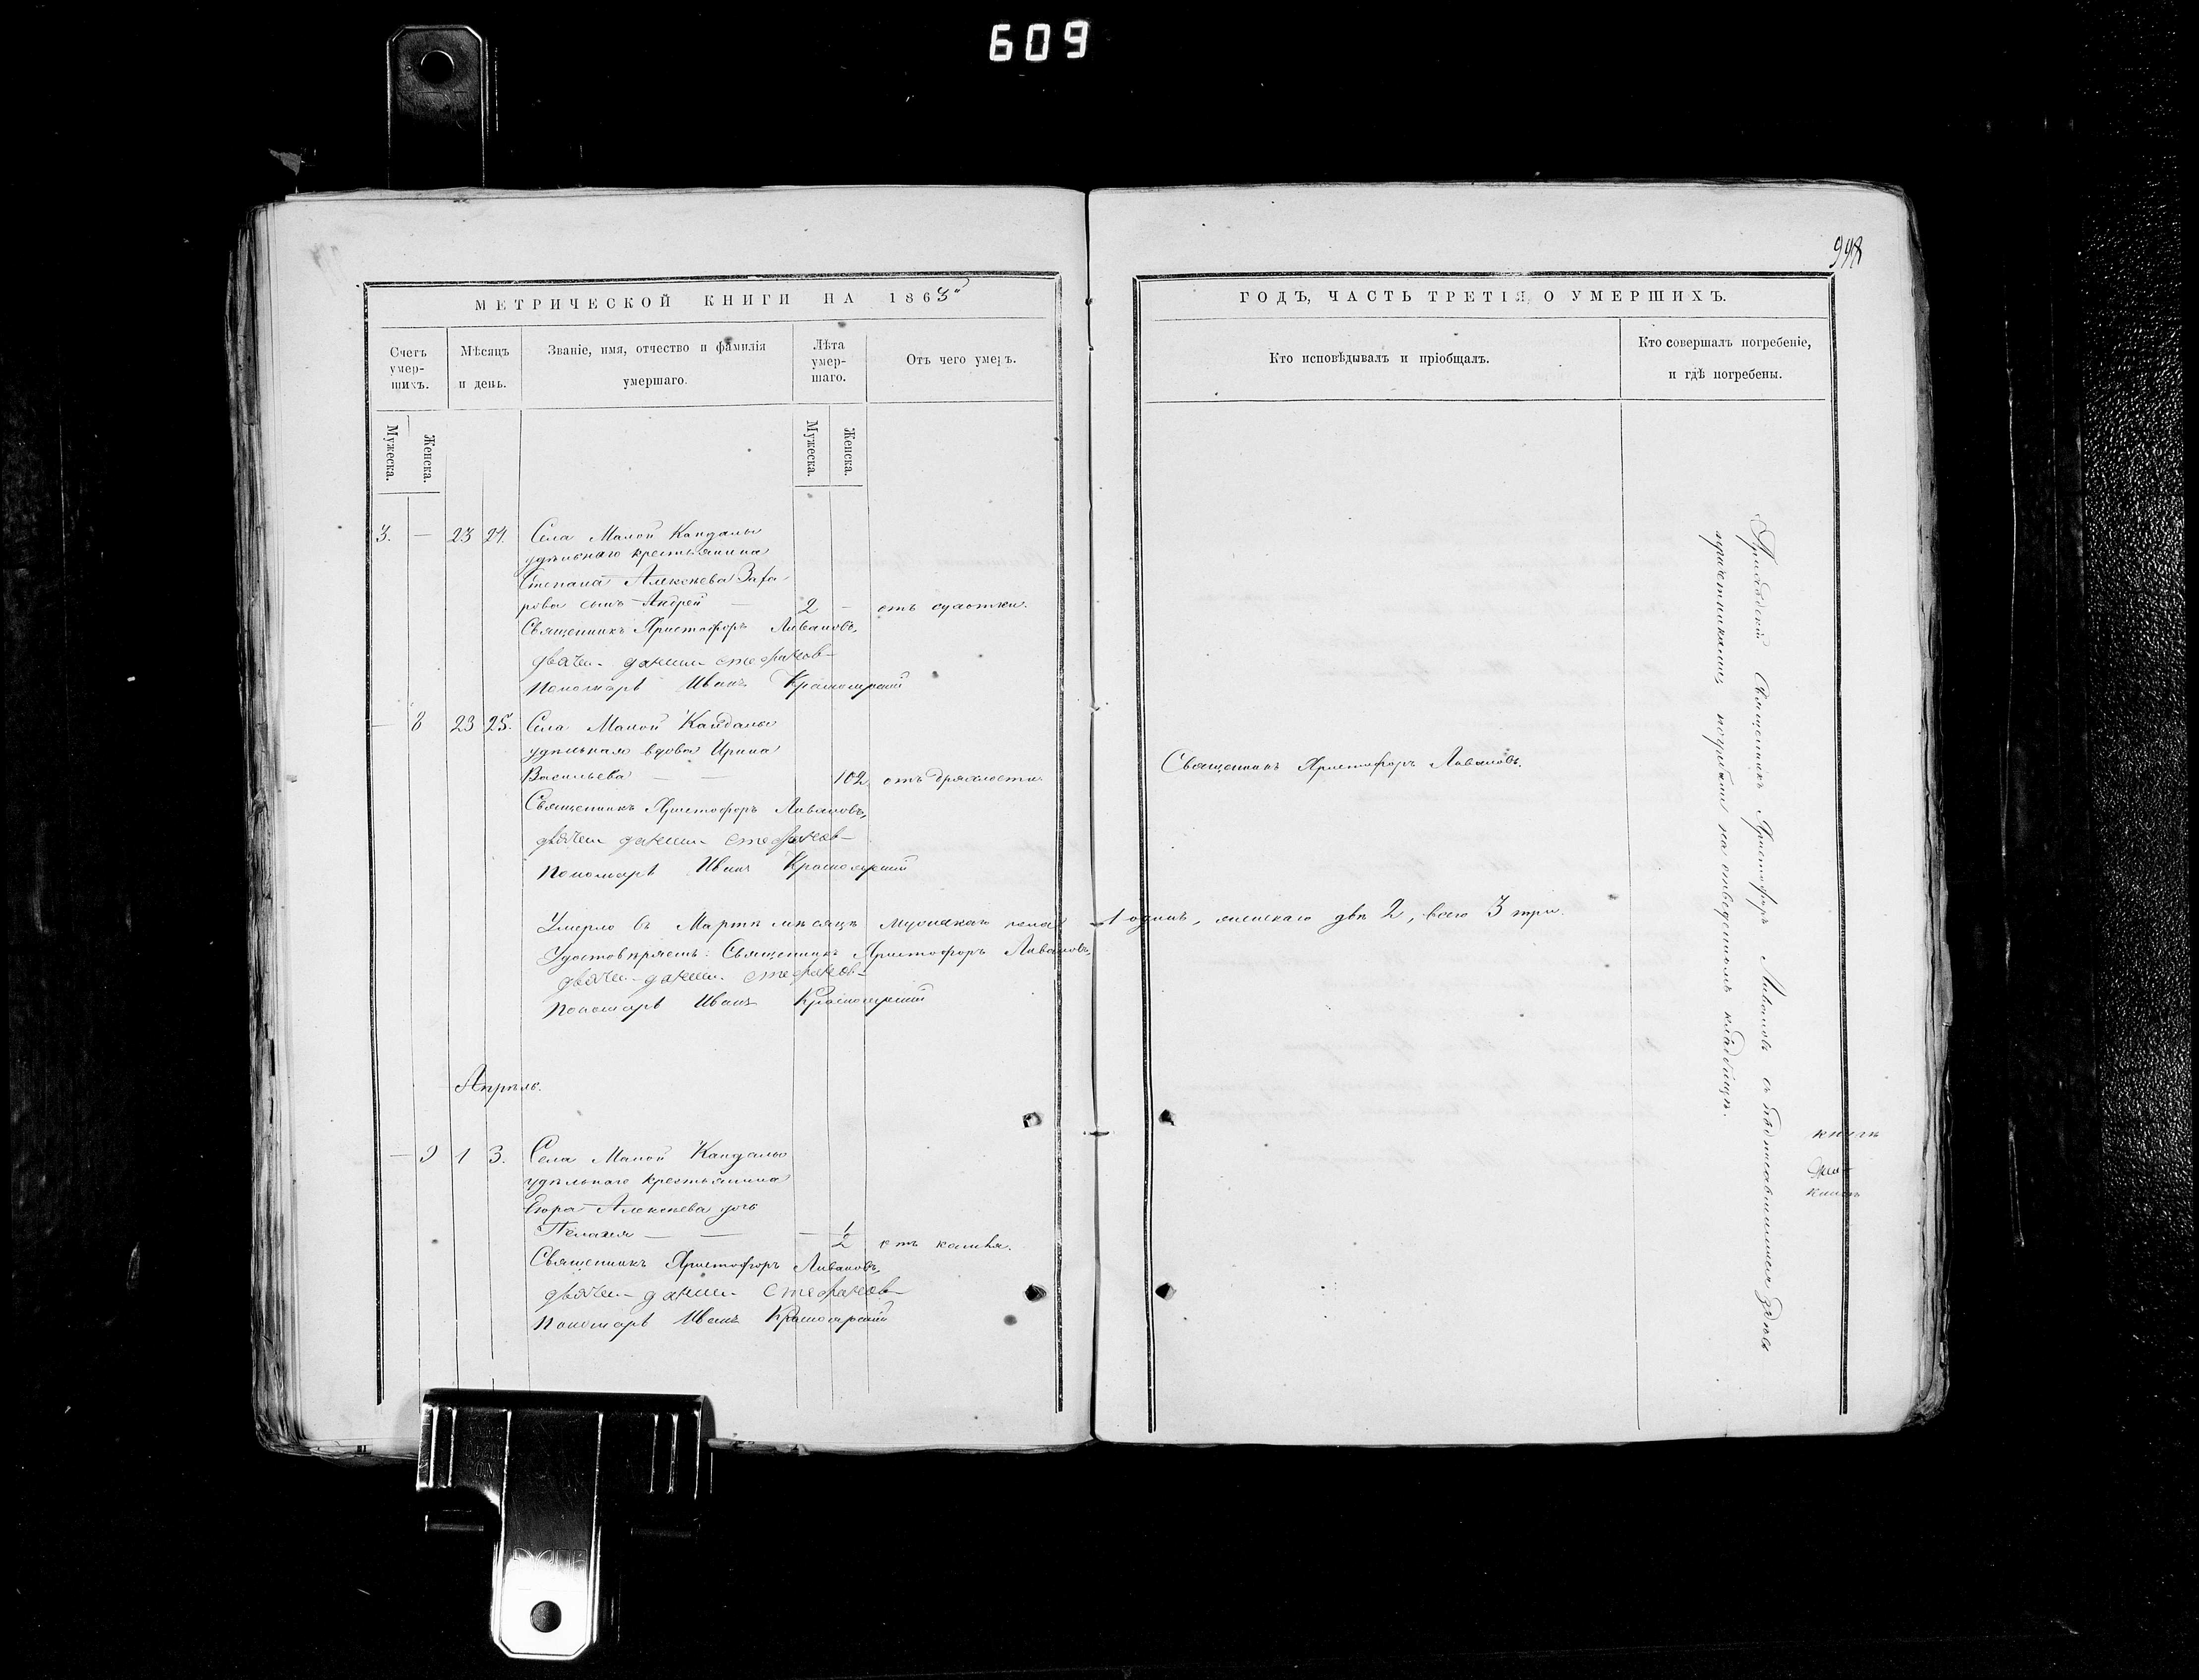 609
998
МЕТРИЧЕСКОЙ КНИГИ НА 1863й
Счетъ умер-шихъ.
Мѣсяцъ и день.
Званіе, имя, отчество и фамилія умершаго.
Лѣта умер-шаго.
Отъ чего умеръ.
Мужеска.
Женска.
Мужеска.
Женска.
3. — 23 24. Села Малой Кандалы
удѣльнаго крестьянина
Степана Алексѣева Заха-
рова сынъ Андрей — 2 — отъ сухотки.
Священникъ Христофоръ Ливановъ,
дьячекъ Стефанов
Пономарь Иванъ Красноярский
— 8 23 25. Села Малой Кандалы
удѣльная вдова Ирина
Васильева — — 102 отъ дряхлости
Священникъ Христофоръ Ливановъ,
дьячекъ Стефанов
Пономарь Иванъ Красноярский
Умерло въ Мартѣ мѣсяцѣ мужскаго пола
Удостовѣряемъ: Священникъ Христофоръ Ливановъ,
дьячекъ Стефанов
Пономарь Иванъ Красноярский
Апрѣль.
— 9 1 3. Села Малой Кандалы
удѣльнаго крестьянина
Егора Алексѣева дочь
Пелагея — — — 1/2 отъ кашля.
Священникъ Христофоръ Ливановъ,
дьячекъ Стефанов
Пономарь Иванъ Красноярский
ГОДЪ, ЧАСТЬ ТРЕТІЯ, О УМЕРШИХЪ.
Кто исповѣдывалъ и пріобщалъ.
Кто совершалъ погребеніе, и гдѣ погребены.
Священникъ Христофоръ Ливановъ.
1 одинъ, женскаго двѣ 2, всего 3 три.
Приходскій Священникъ Христофоръ Ливановъ съ подписавшимися здѣсь
причетниками погребены на отведенномъ кладбищѣ.